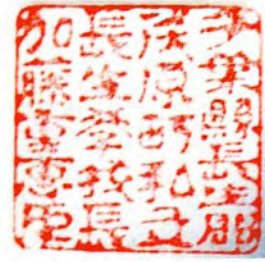 千葉縣長生郡
茂原町私立
長生學校長
加藤